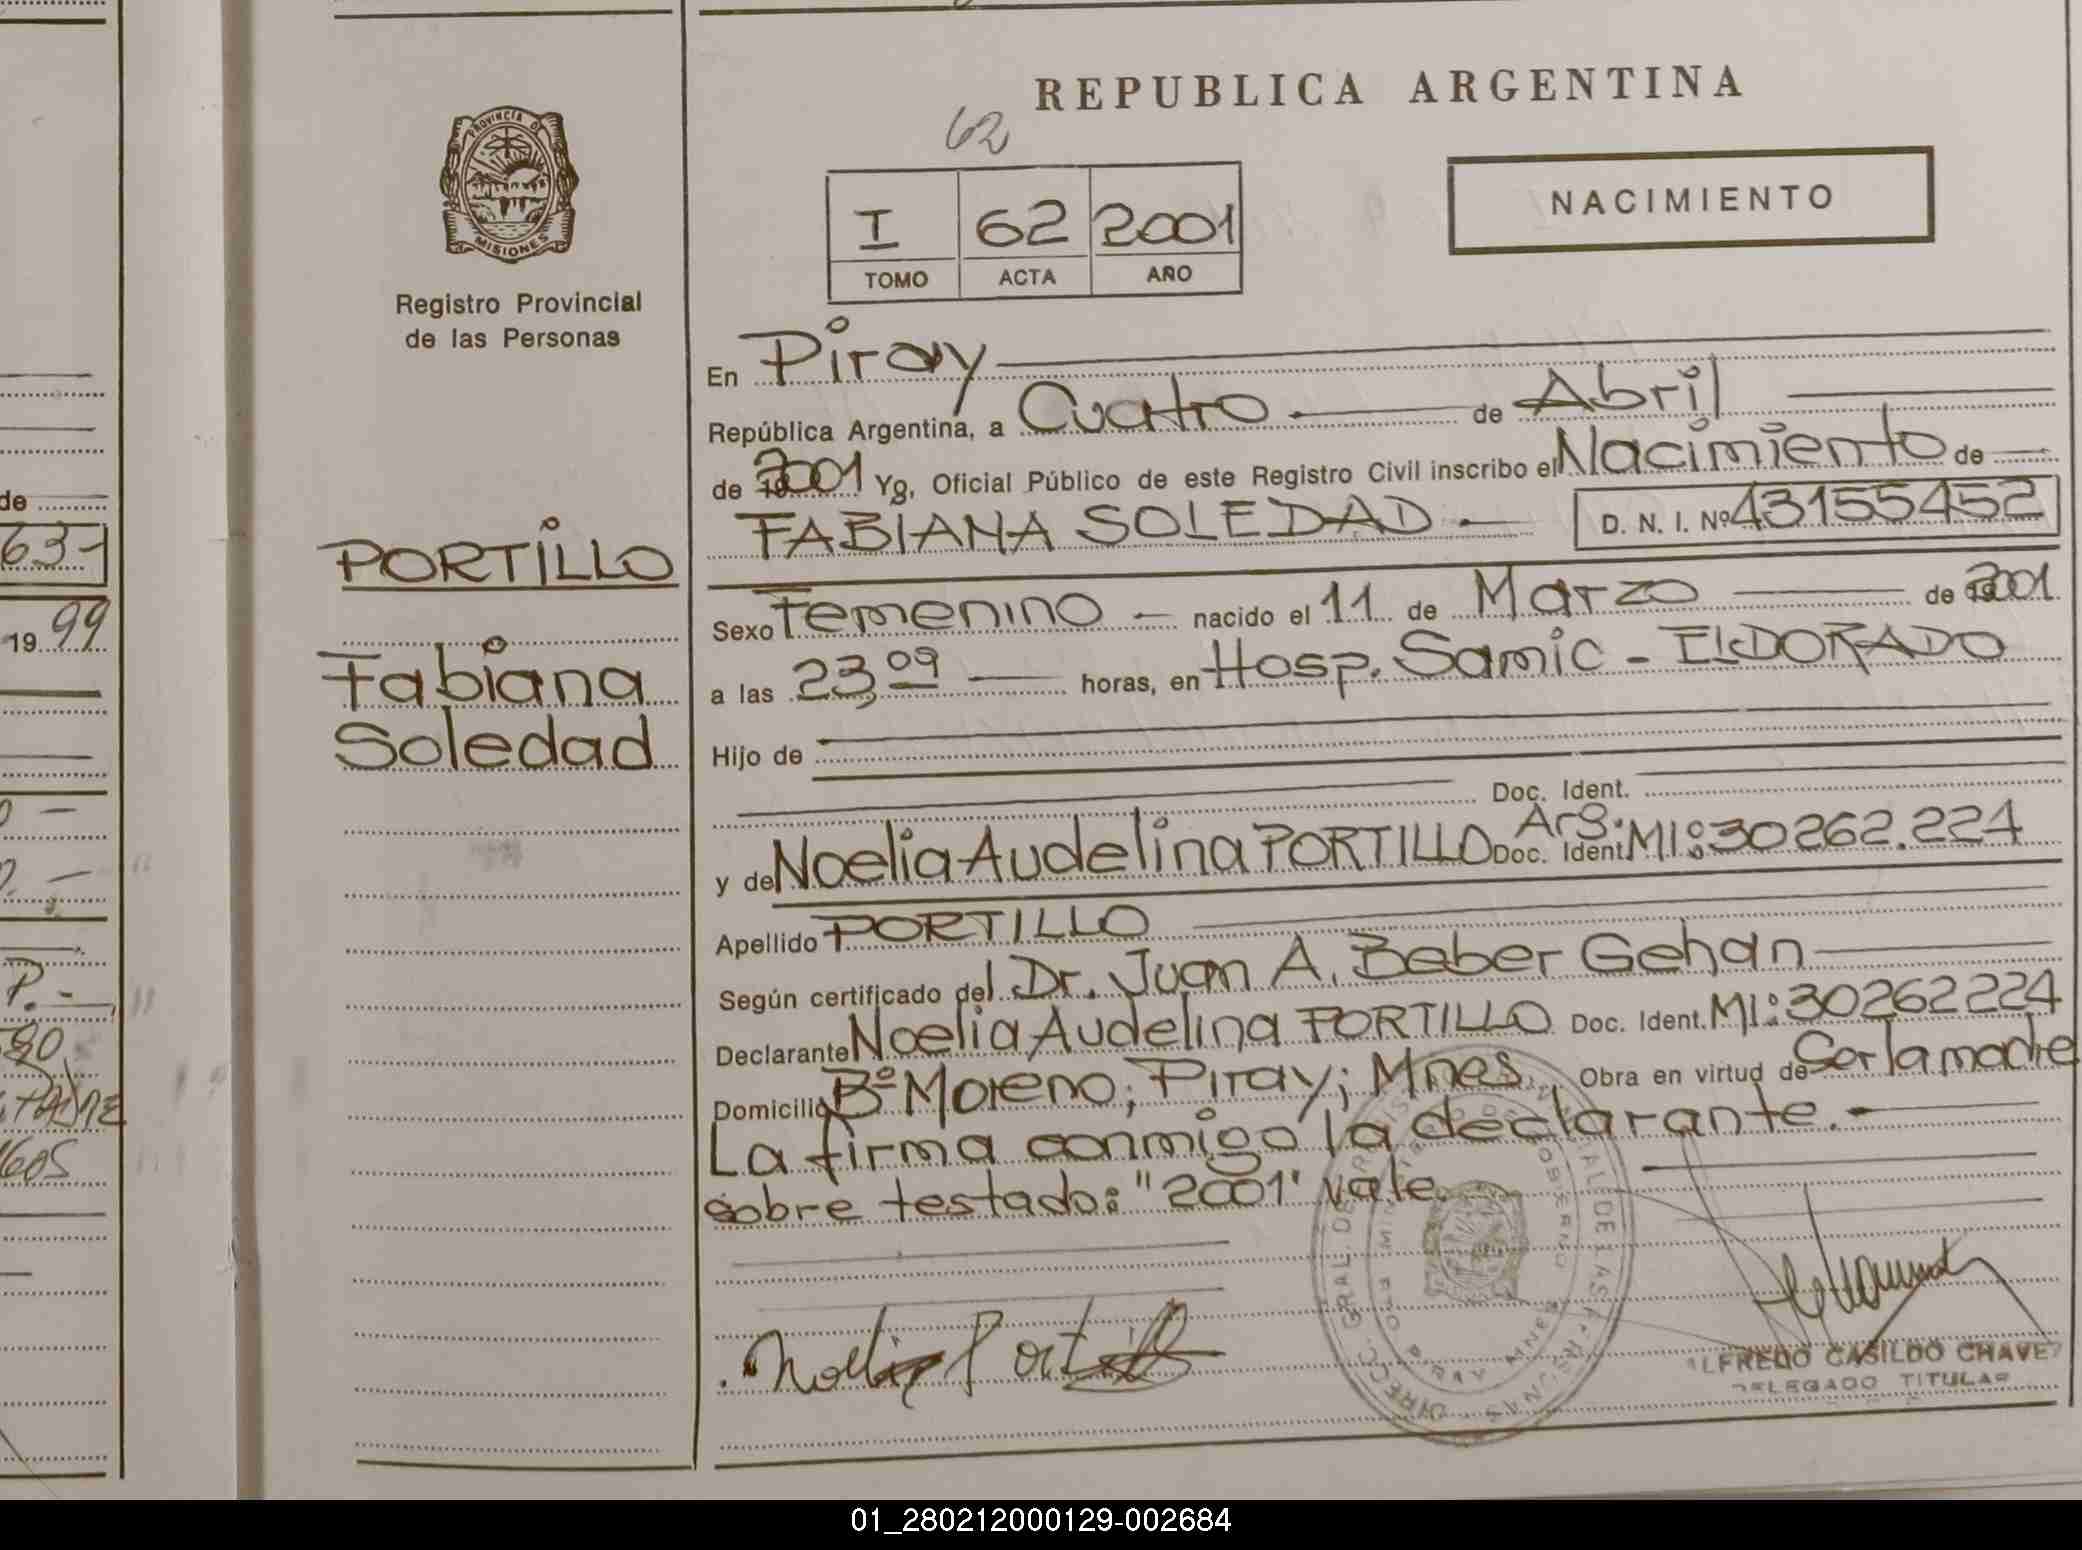 REPUBLICA ARGENTINA
62
PROVINCIA DE
MISIONES
Registro Provincial
de las Personas
I 62 2001
TOMO ACTA AÑO
NACIMIENTO
En Piray
República Argentina, a Cuatro de Abril
de 2001 Yo, Oficial Público de este Registro Civil inscribo el Nacimiento de
FABIANA SOLEDAD D. N. I. Nº 43155452
PORTILLO
Fabiana
Soledad
Sexo Femenino nacido el 11 de Marzo de 2001
a las 23,09 horas, en Hosp. Samic - ELDORADO
Hijo de
Doc. Ident.
y de Noelia Audelina PORTILLO Doc. Ident. Arg. MI: 30262.224
Apellido PORTILLO
Según certificado del Dr. Juan A. Beber Gehan
Declarante Noelia Audelina PORTILLO Doc. Ident. MI: 30262224
Domicilio Bº Moreno; Piray; Mnes. Obra en virtud de Ser la madre
La firma conmigo la declarante.-
sobre testado: "2001" vale.
Noelia Portillo
ALFREDO CASILDO CHAVEZ
DELEGADO TITULAR
de
63-
1999
P.-
01_280212000129-002684